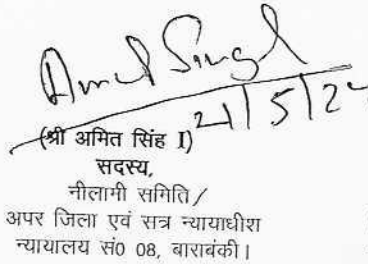 Amit Singh
21/5/24
(श्री अमित सिंह I)
सदस्य,
नीलामी समिति/
अपर जिला एवं सत्र न्यायाधीश
न्यायालय सं0 08, बाराबंकी।